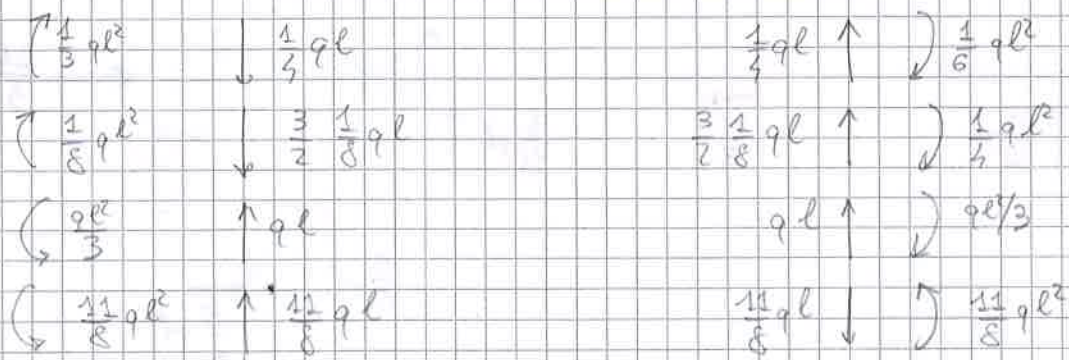 1/3 ql² 1/4 ql 1/4 ql 1/6 ql²
1/8 ql² 3/2 1/8 ql 3/2 1/8 ql 1/4 ql²
ql²/3 ql ql ql²/3
11/8 ql² 11/8 ql 11/8 ql 11/8 ql²